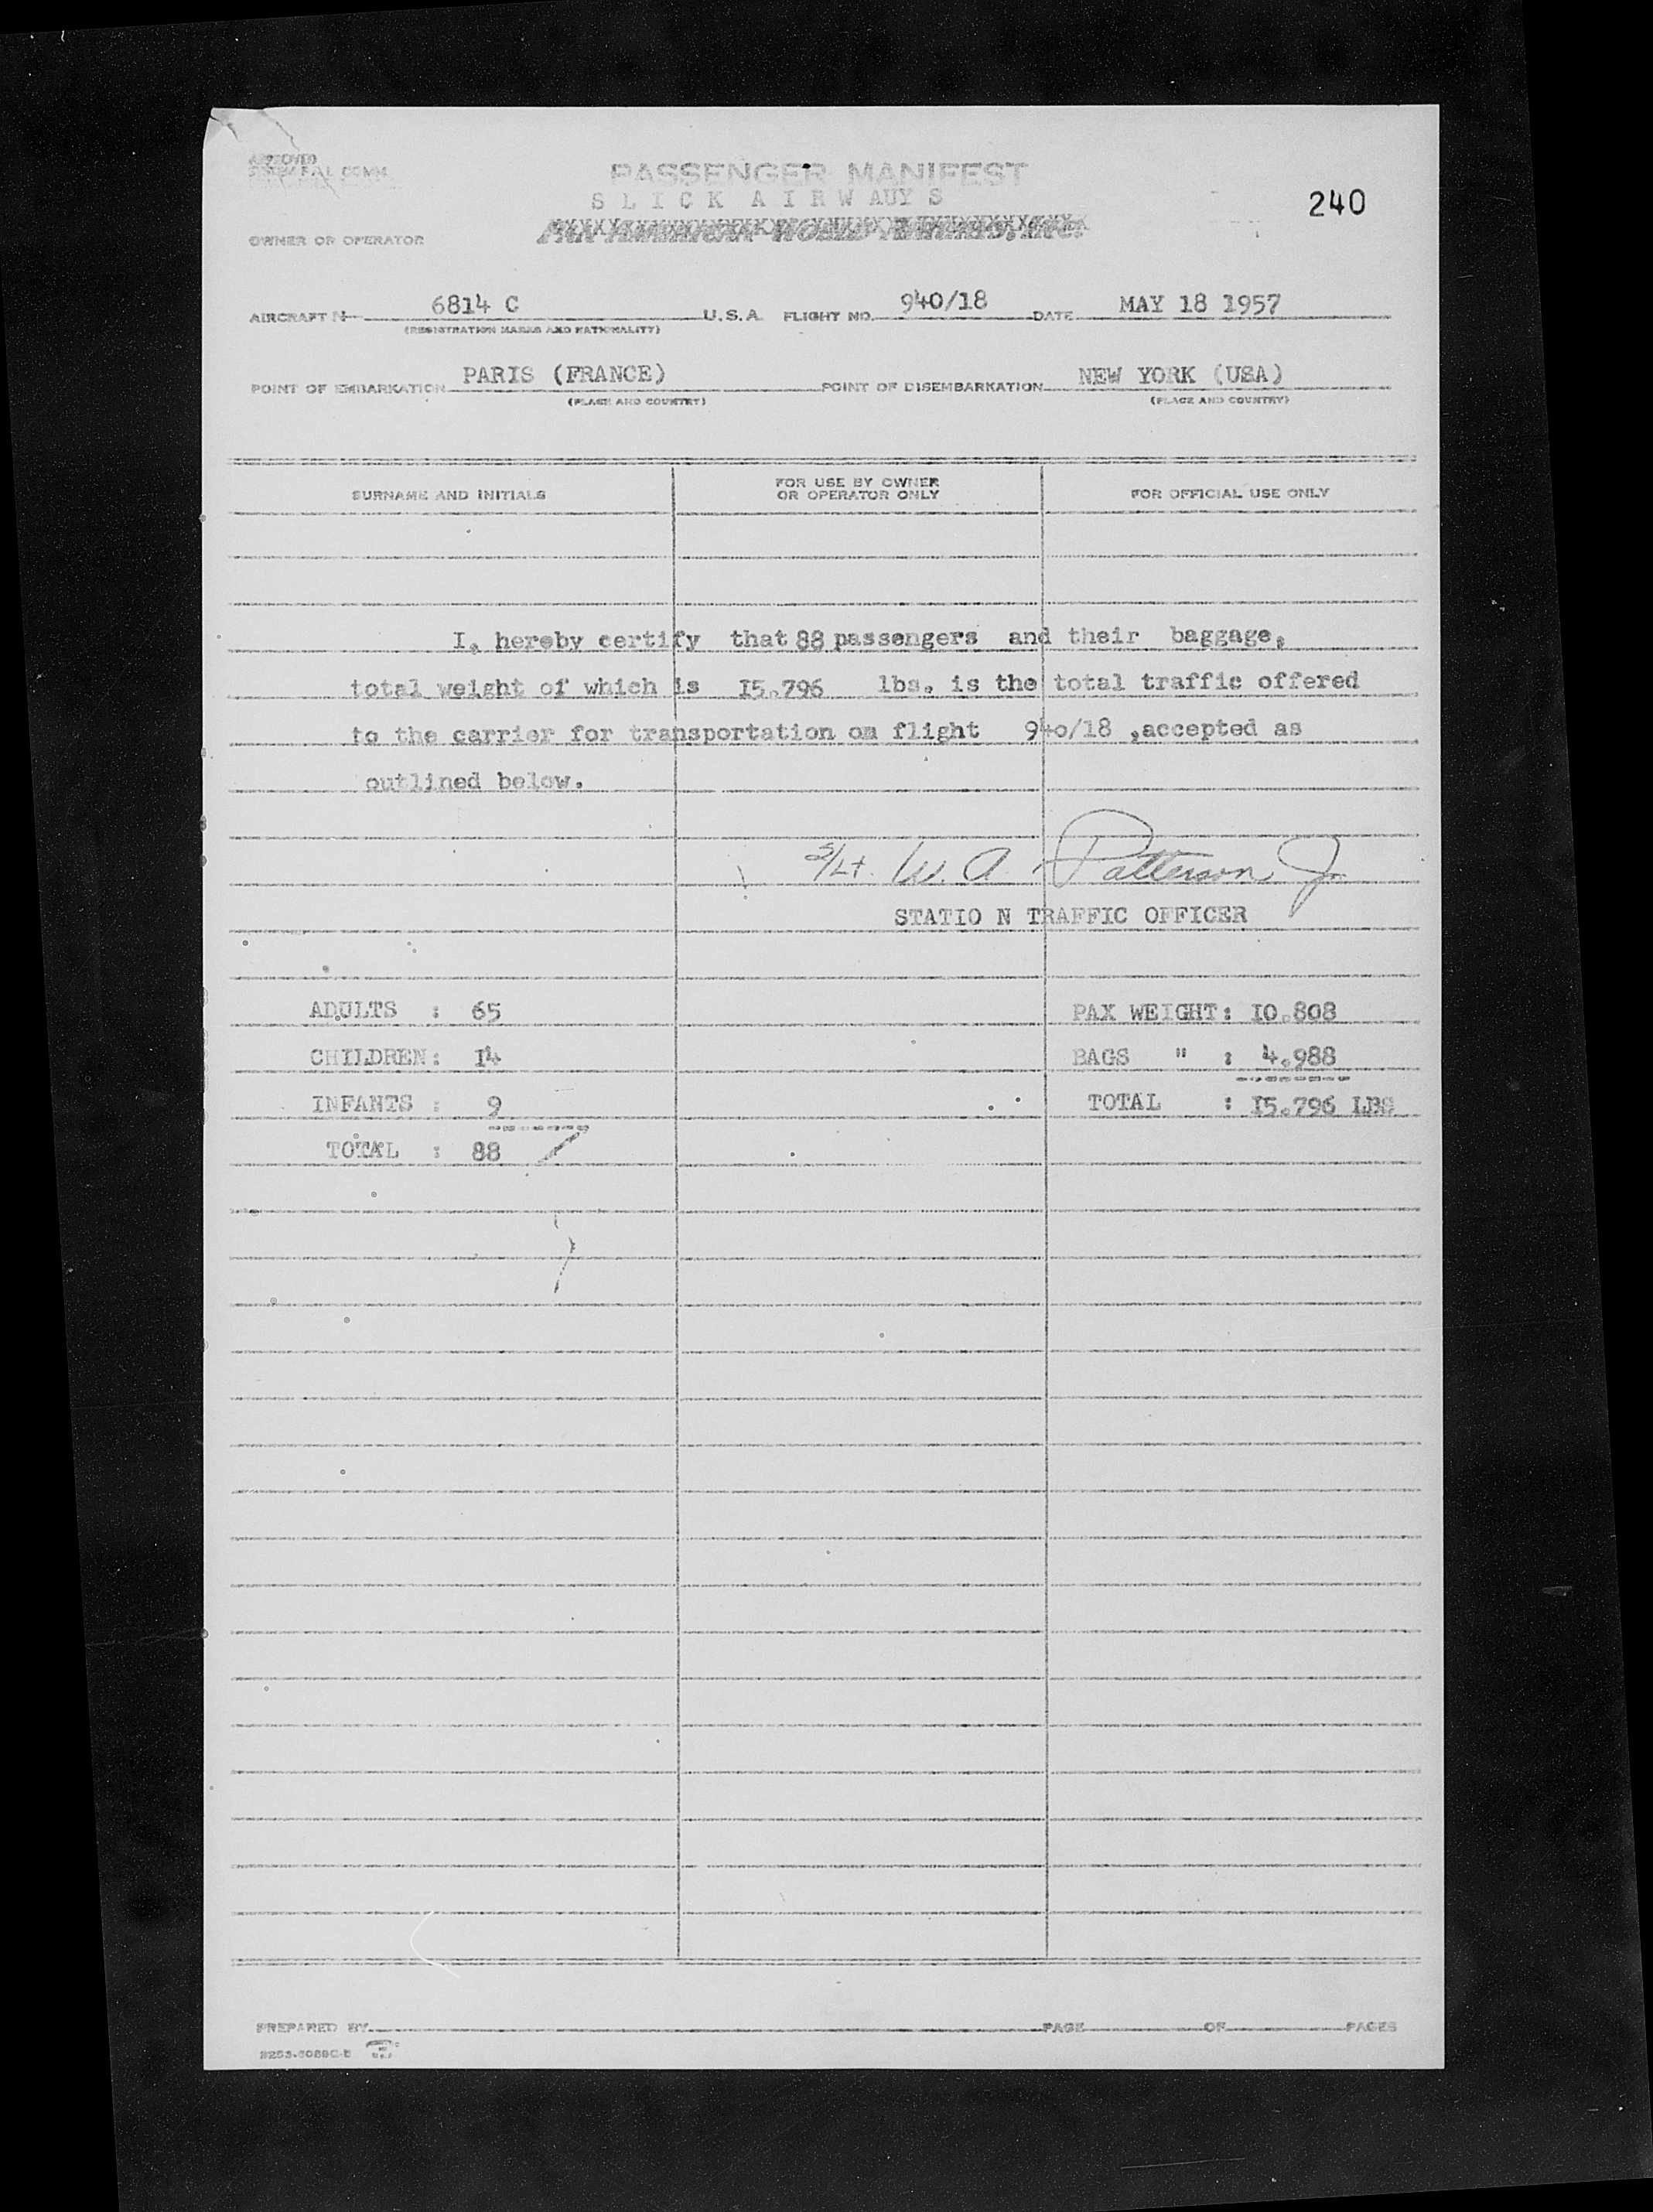 APPROVED
PASSENGER MANIFEST
S L I C K A I R W AUY S
240
OWNER OR OPERATOR
AIRCRAFT N 6814 C U.S.A. FLIGHT NO. 940/18 DATE MAY 18 1957
(REGISTRATION MARKS AND NATIONALITY)
POINT OF EMBARKATION PARIS (FRANCE) POINT OF DISEMBARKATION NEW YORK (USA)
(PLACE AND COUNTRY) (PLACE AND COUNTRY)
SURNAME AND INITIALS FOR USE BY OWNER OR OPERATOR ONLY FOR OFFICIAL USE ONLY
I, hereby certify that 88 passengers and their baggage,
total weight of which is I5.796 lbs. is the total traffic offered
to the carrier for transportation on flight 940/18 ,accepted as
outlined below.
S/Lt. W. A. Patterson Jr
STATIO N TRAFFIC OFFICER
ADULTS : 65 PAX WEIGHT: I0.808
CHILDREN: I4 BAGS " : 4.988
INFANTS : 9 TOTAL : I5.796 LBS
TOTAL : 88
PREPARED BY PAGE OF PAGES